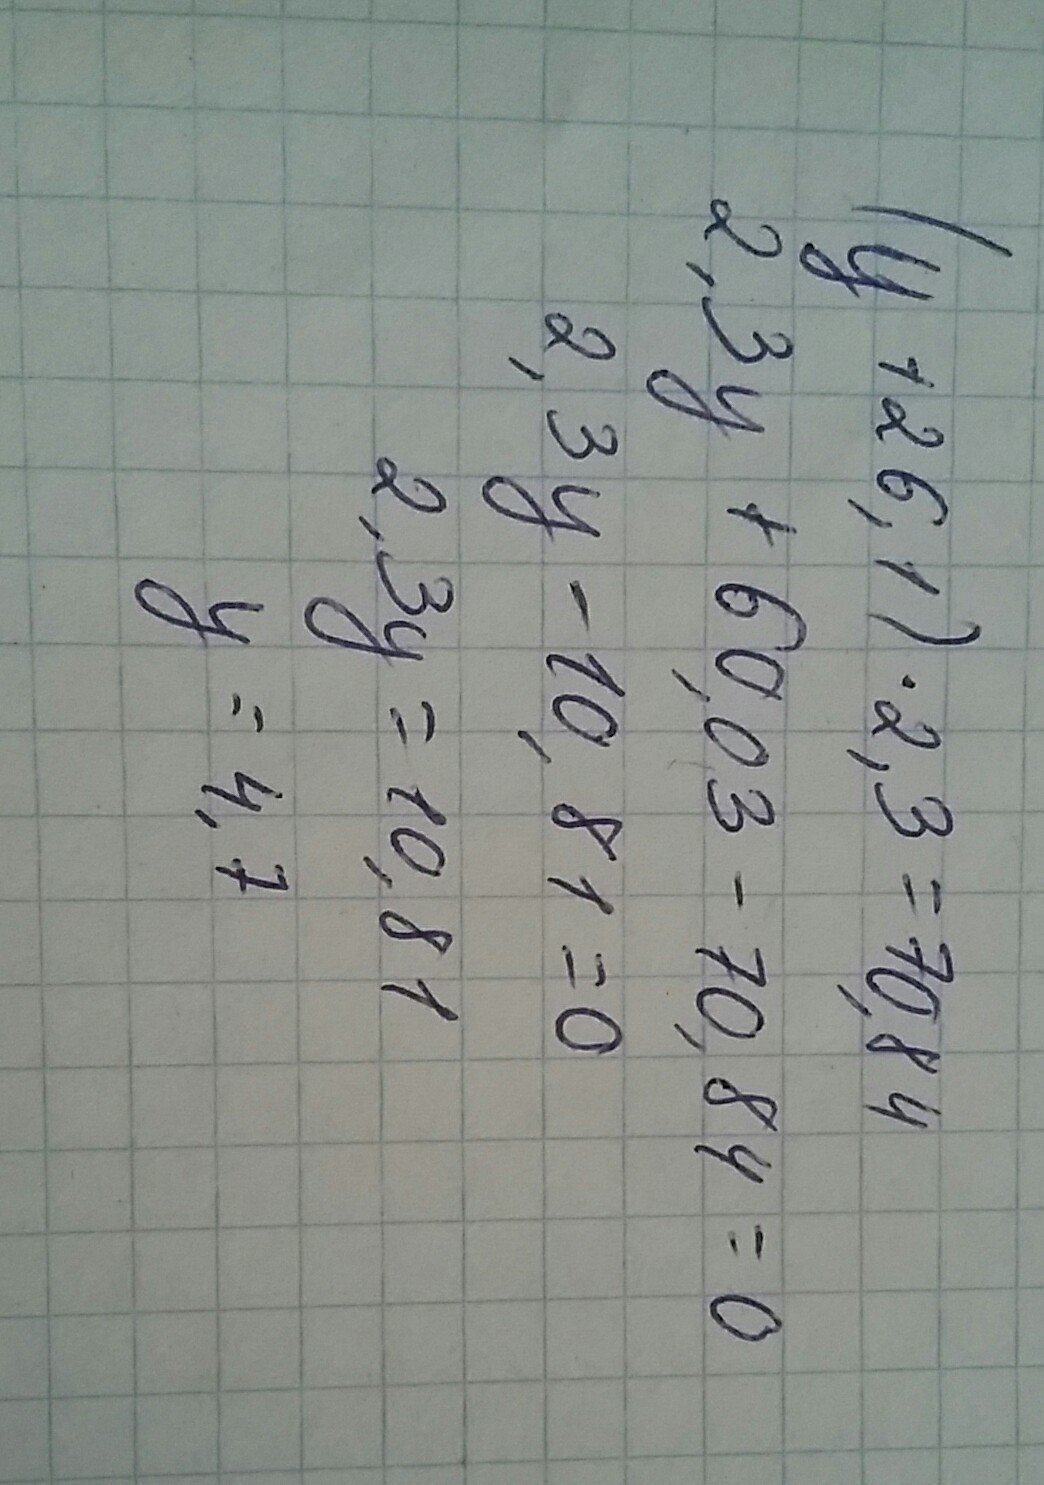 (y + 26,1) · 2,3 = 70,84
2,3y + 60,03 - 70,84 = 0
2,3y - 10,81 = 0
2,3y = 10,81
y = 4,7